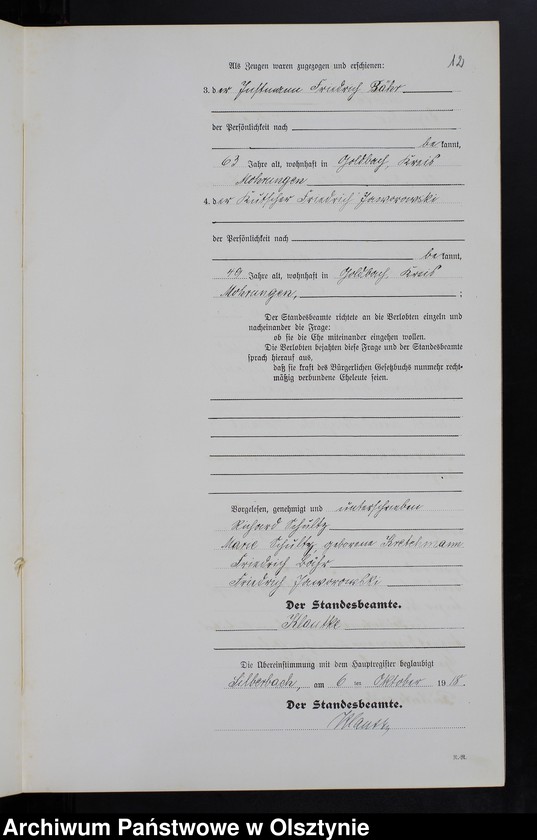 12
Als Zeugen waren zugezogen und erschienen:
3. der Instmann Friedrich Bähr
der Persönlichkeit nach
bekannt,
63 Jahre alt, wohnhaft in Goldbach, Kreis
Mohrungen
4. der Kutscher Friedrich Jaworowski
der Persönlichkeit nach
bekannt,
49 Jahre alt, wohnhaft in Goldbach, Kreis
Mohrungen, ;
Der Standesbeamte richtete an die Verlobten einzeln und
nacheinander die Frage:
ob sie die Ehe miteinander eingehen wollen.
Die Verlobten bejahten diese Frage und der Standesbeamte
sprach hierauf aus,
daß sie kraft des Bürgerlichen Gesetzbuchs nunmehr recht-
mäßig verbundene Eheleute seien.
Vorgelesen, genehmigt und unterschrieben
Richard Schultz
Marie Schultz, geborene Kretschmann
Friedrich Bähr
Friedrich Jaworowski
Der Standesbeamte.
Klautke
Die Übereinstimmung mit dem Hauptregister beglaubigt
Silberbach, am 6 ten Oktober 1918.
Der Standesbeamte.
Klautke
Archiwum Państwowe w Olsztynie